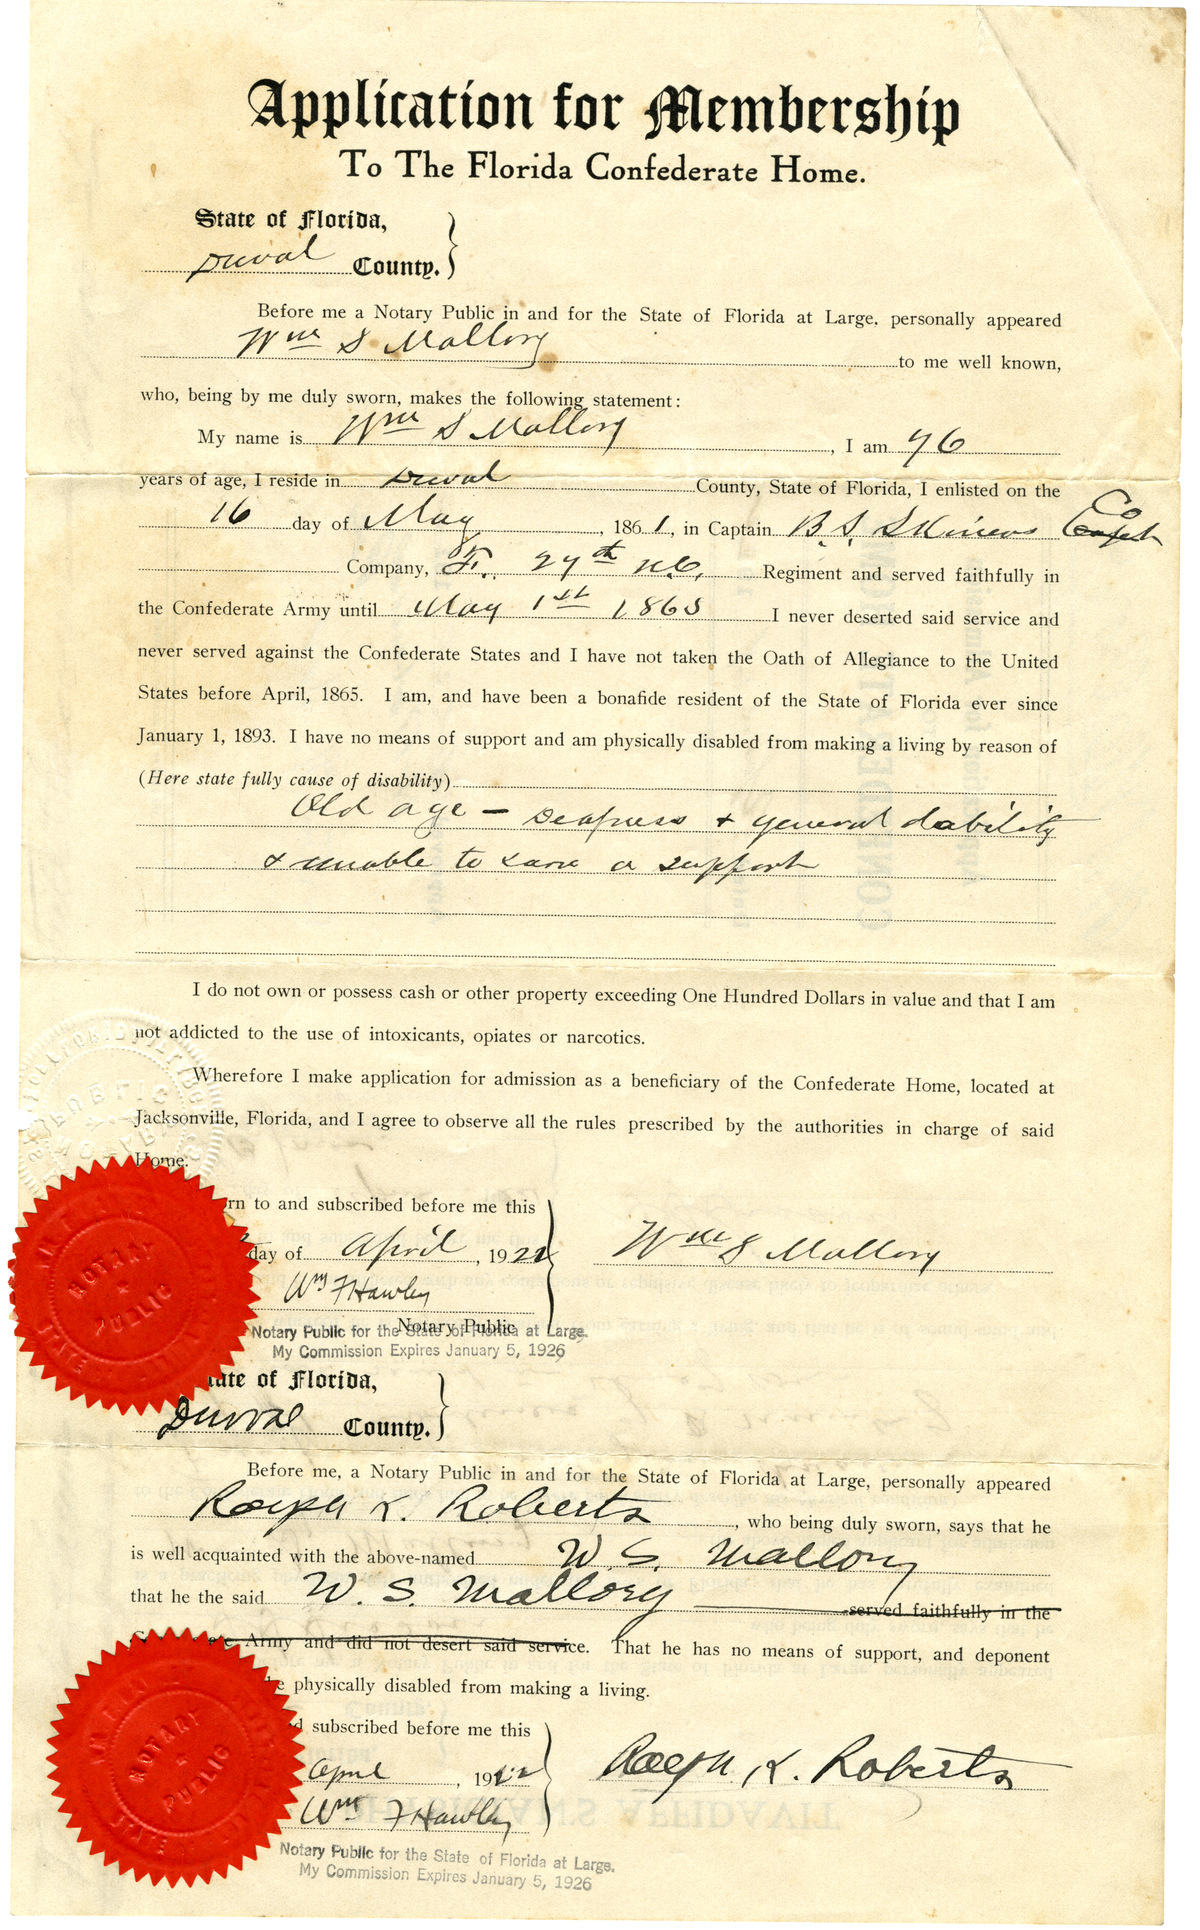 Application for Membership
To The Florida Confederate Home.
State of Florida,
Duval County.
Before me a Notary Public in and for the State of Florida at Large, personally appeared
Wm S Mallory to me well known,
who, being by me duly sworn, makes the following statement:
My name is Wm S Mallory, I am 76
years of age, I reside in Duval County, State of Florida, I enlisted on the
16 day of May, 1861, in Captain B. S. Skiners Co
Company, F. 27th N.C. Regiment and served faithfully in
the Confederate Army until May 1st 1865 I never deserted said service and
never served against the Confederate States and I have not taken the Oath of Allegiance to the United
States before April, 1865. I am, and have been a bonafide resident of the State of Florida ever since
January 1, 1893. I have no means of support and am physically disabled from making a living by reason of
(Here state fully cause of disability)
Old age - Deafness & general dability
& unable to earn a support
I do not own or possess cash or other property exceeding One Hundred Dollars in value and that I am
not addicted to the use of intoxicants, opiates or narcotics.
Wherefore I make application for admission as a beneficiary of the Confederate Home, located at
Jacksonville, Florida, and I agree to observe all the rules prescribed by the authorities in charge of said
Home.
rn to and subscribed before me this
day of April, 1922 Wm S Mallory
Wm F Hawley
Notary Public
Notary Public for the State of Florida at Large.
My Commission Expires January 5, 1926
NOTARY PUBLIC
State of Florida,
Duval County.
Before me, a Notary Public in and for the State of Florida at Large, personally appeared
Ralph K. Roberts, who being duly sworn, says that he
is well acquainted with the above-named W. S. Mallory
that he the said W. S. Mallory served faithfully in the
Army and did not desert said service. That he has no means of support, and deponent
physically disabled from making a living.
subscribed before me this
April, 1922 Ralph K. Roberts
Wm F Hawley
Notary Public for the State of Florida at Large.
My Commission Expires January 5, 1926
NOTARY PUBLIC